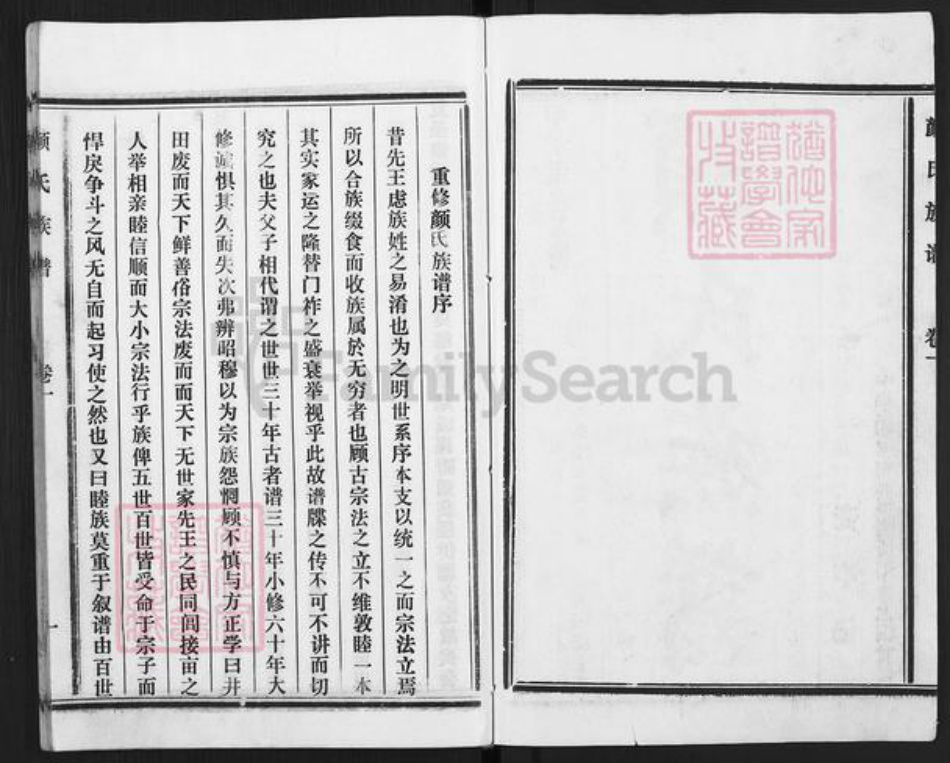 颜氏族谱 卷一
重修颜氏族谱序
昔先王虑族姓之易淆也为之明世系序本支以统一之而宗法立焉
所以合族缀食而收族属於无穷者也顾古宗法之立不维敦睦一本
其实家运之隆替门祚之盛衰举视乎此故谱牒之传不可不讲而切
究之也夫父子相代谓之世世三十年古者谱三十年小修六十年大
修诚惧其久而失次弗辨昭穆以为宗族怨恫顾不慎与方正学曰井
田废而天下鲜善俗宗法废而而天下无世家先王之民同闾接亩之
人举相亲睦信顺而大小宗法行乎族俾五世百世皆受命于宗子而
悍戾争斗之风无自而起习使之然也又曰睦族莫重于叙谱由百世
颜氏族谱 卷一 一
猶他家
譜學會
收藏
FamilySearch